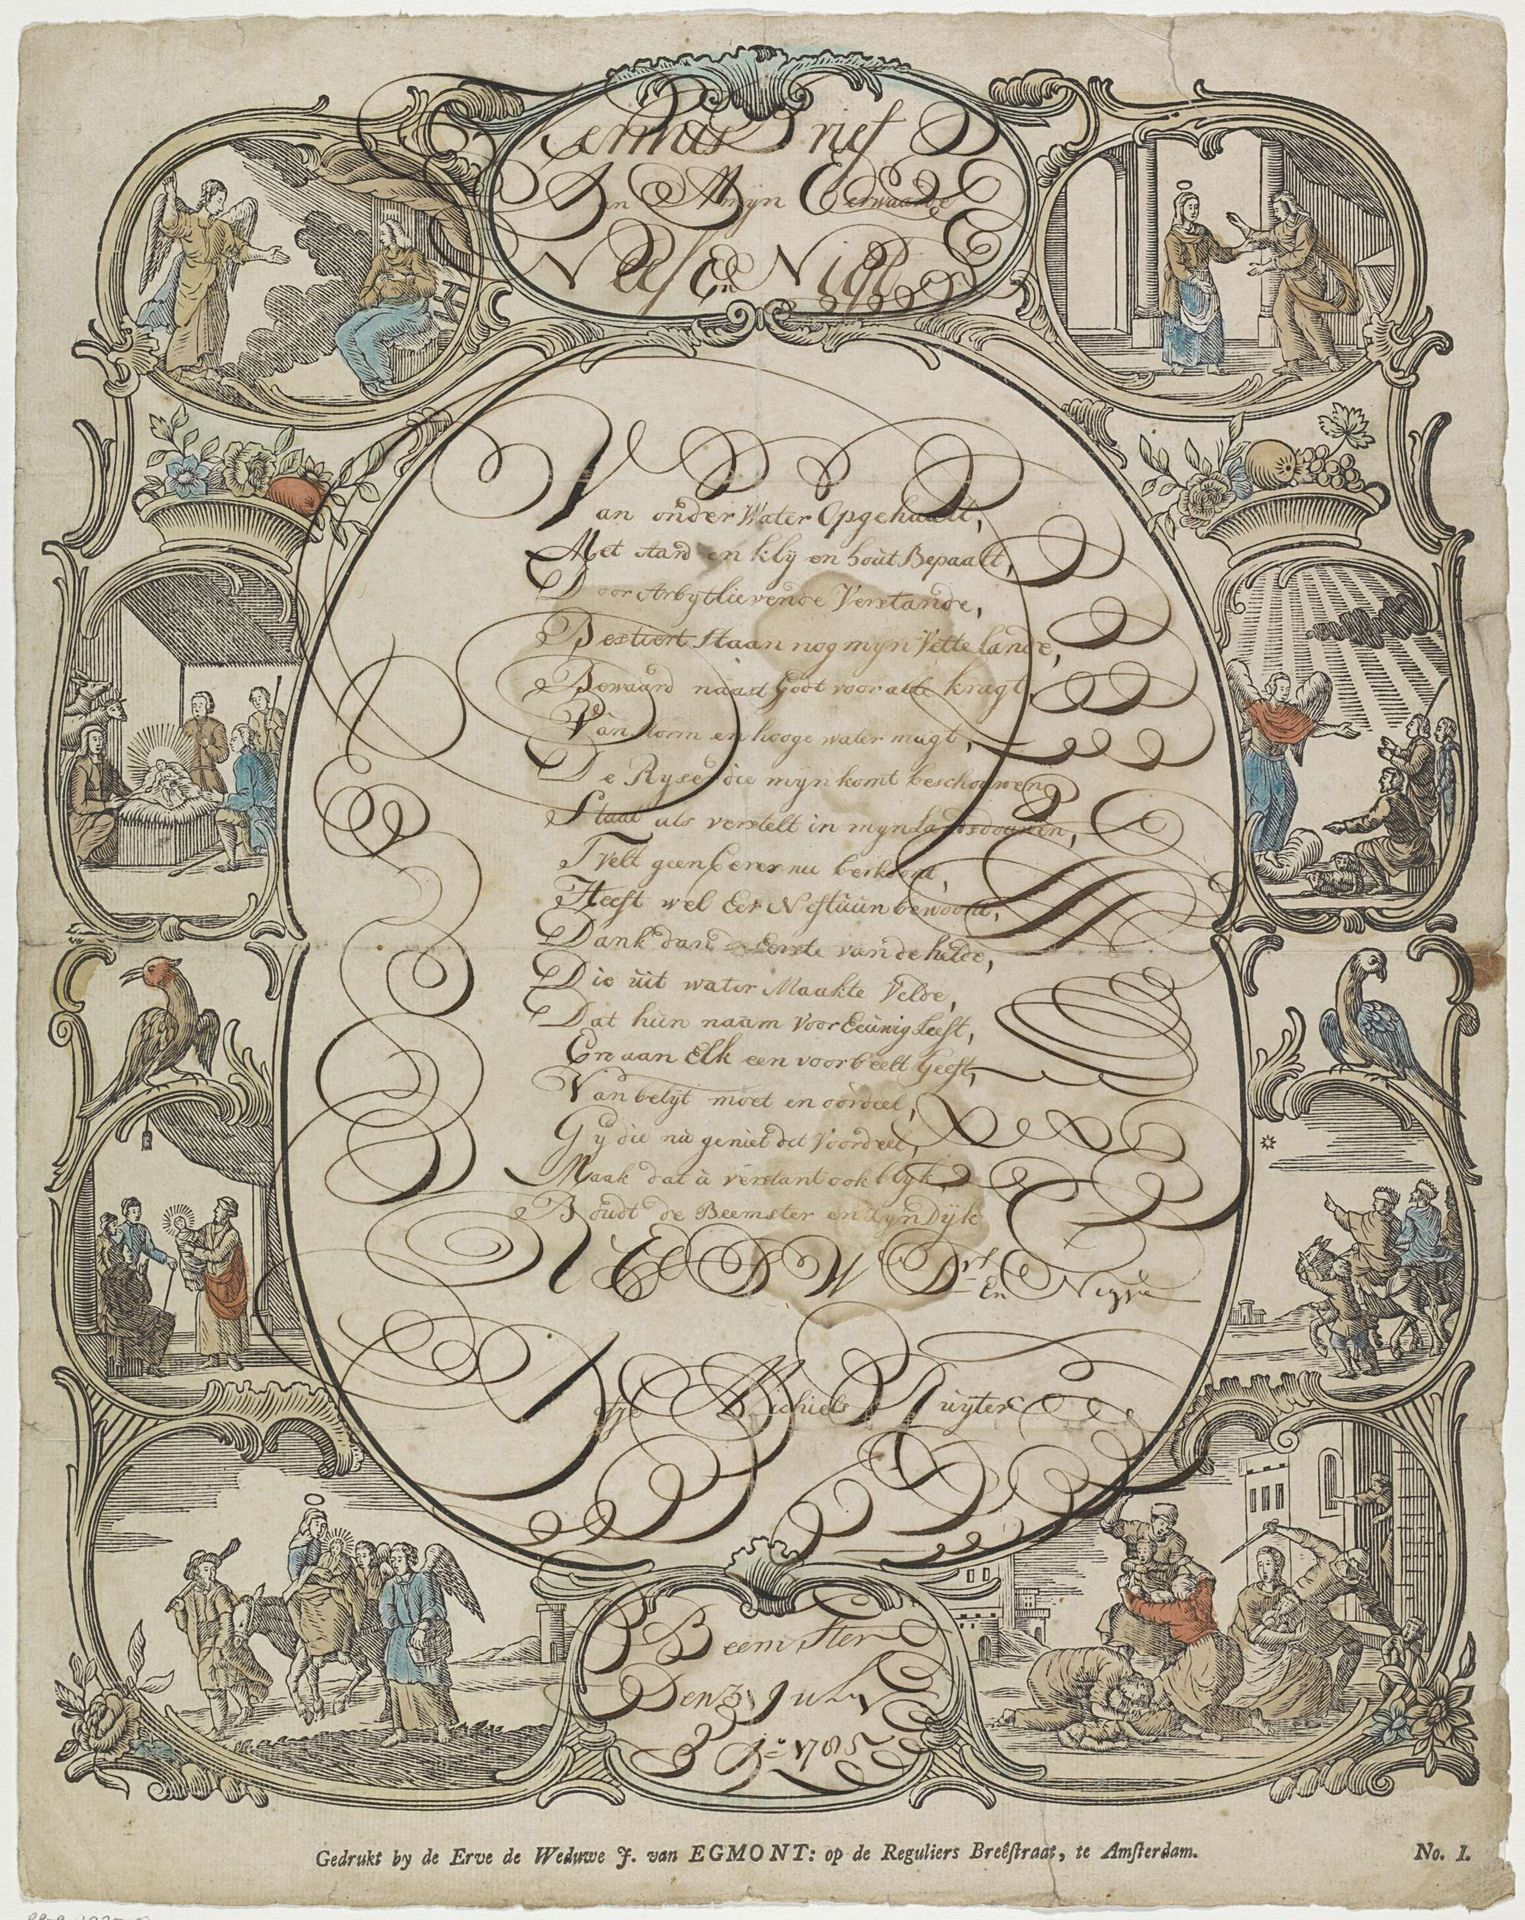 Kermis Brief
Aan Mijn Eerwaarde
Neef En Nigt
Van onder Water Opgehaalt,
Met Aard en klij en hout Bepaalt,
Door Arbytlievende Verstande,
Bestiert Staan nog myn Vette lande,
Bewaard naast Godt voor alle kragt,
Van storm en hooge water magt,
De Ryser die mijn komt beschouwen
Staat als verstelt in myn Landsdouwen,
T velt geen
Heeft wel Eer Neptuun bewoont,
Dank dan Eerste van de helde,
Die uit water Maakte Velde,
Dat hun naam Voor Eeuwig Leeft,
En aan Elk een voorbeelt Geeft,
Van belijt moet en oordeel,
Gy die nu geniet dit Voordeel,
Maak dat u verstant ook blyk,
Boudt de Beemster en zyn Dijk
U E D W Dr
En Neggie
Michiels Ruyter
Beemster
Den 3 July
Ao 1785
Gedrukt by de Erve de Weduwe J. van EGMONT: op de Reguliers Breêstraat, te Amsterdam.
No. 1.